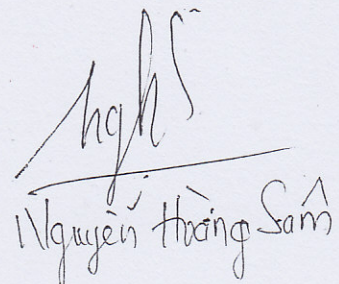 Nguyễn Hoàng Sâm